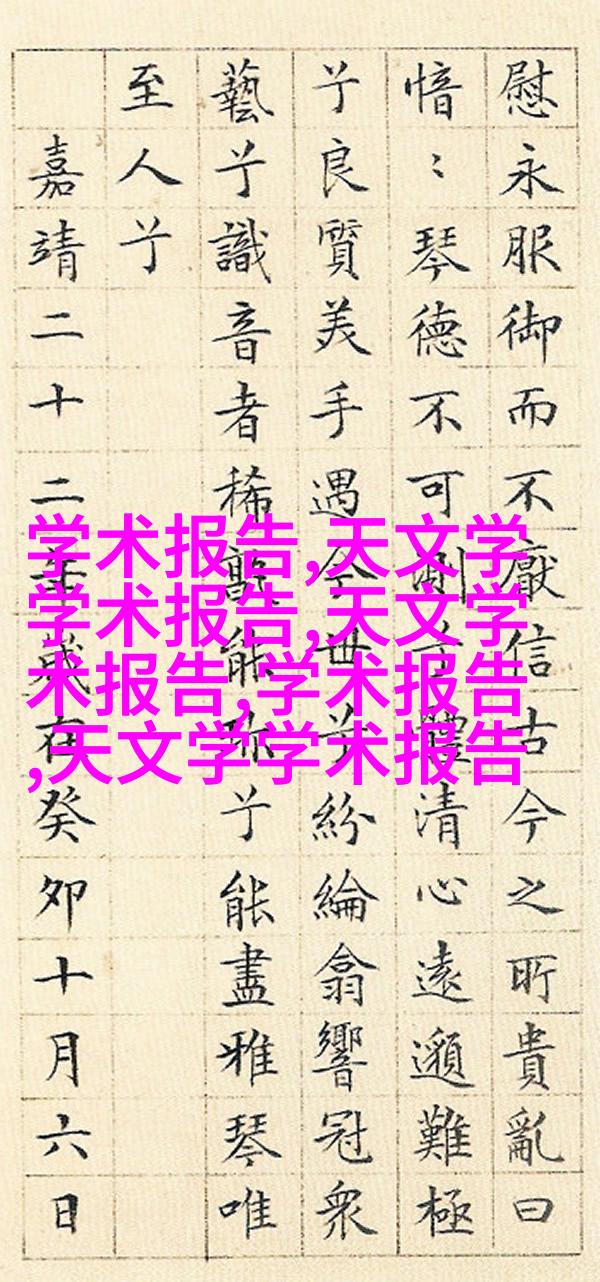 慰永服御而不厭信古今之所貴亂曰
愔〻琴德不可測兮體清心遠邈難極
兮良質美手遇今世兮紛綸翕響冠衆
藝兮識音者稀孰能珎兮能盡雅琴唯
至人兮
嘉靖二十二年歲在癸卯十月六日
学术报告,天文学
学术报告,天文学
术报告,学术报告
,天文学学术报告